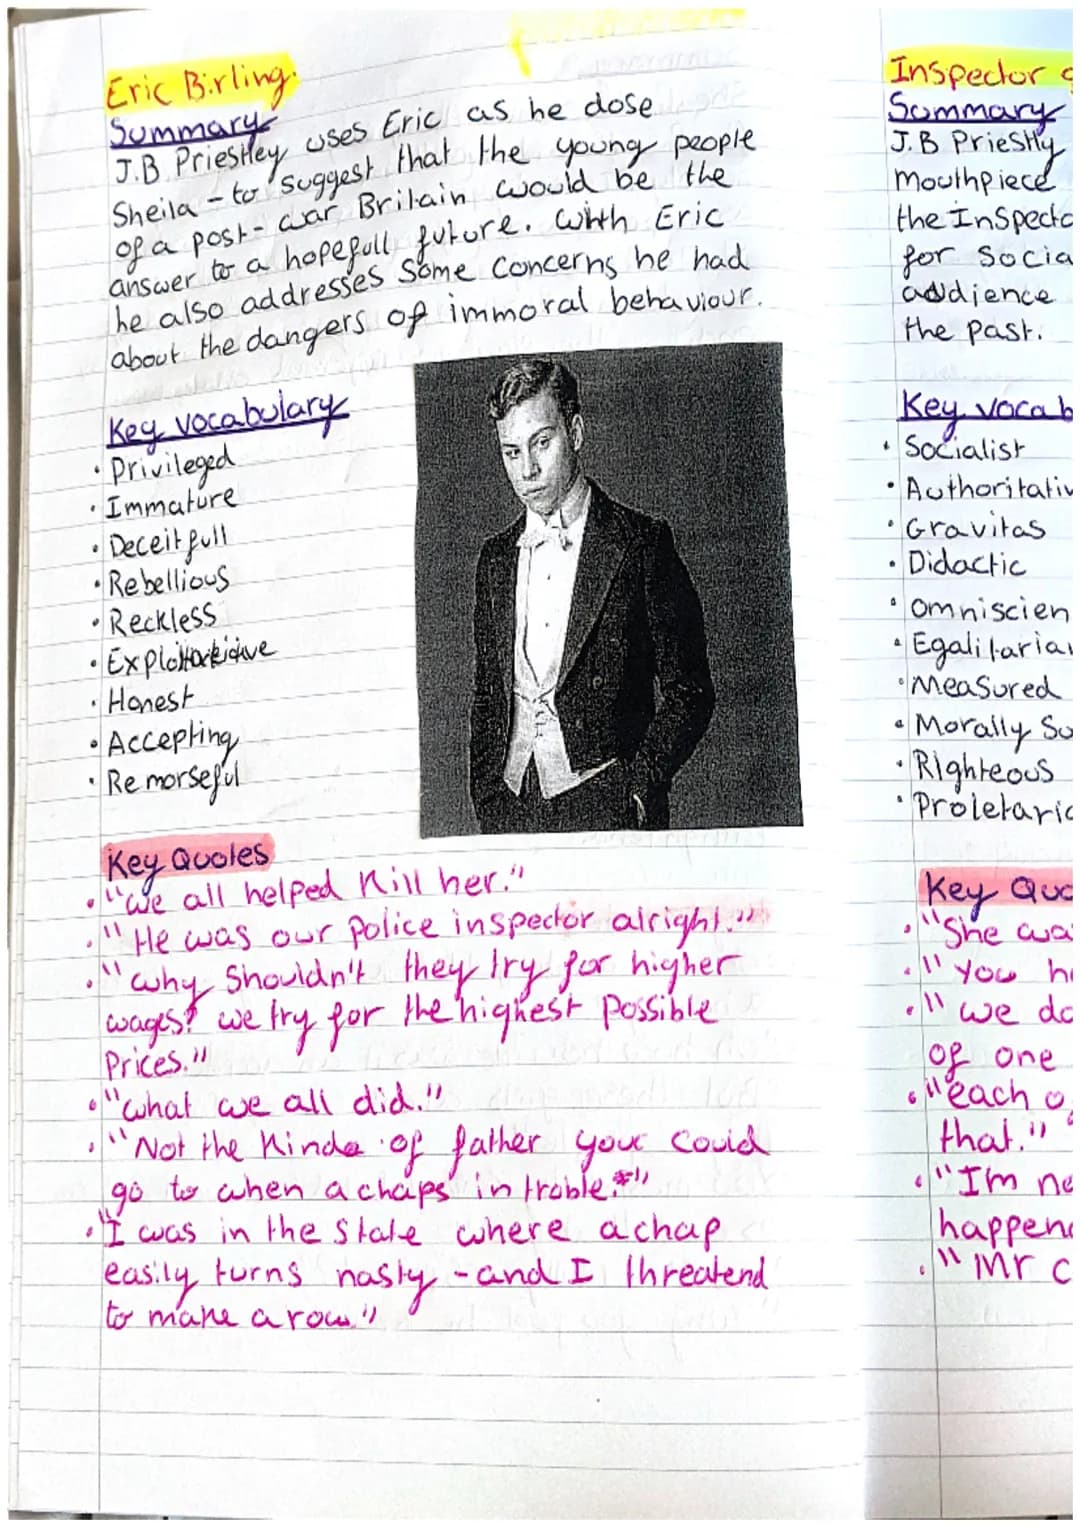 Eric Birling.
Summary
J.B Priestley uses Eric as he dose
Sheila - to suggest that the young people
of a post-war Britain would be the
answer to a hopefull future. With Eric
he also addresses some concerns he had
about the dangers of immoral behaviour.
Key vocabulary
• Privileged
• Immature
• Deceitfull
• Rebellious
• Reckless
• Honest
• Accepting
• Remorseful
Key Quotes
• "we all helped kill her."
• "He was our Police inspector alright."
• "why shouldn't they try for higher
wages? we try for the highest possible
Prices."
• "what we all did."
• "Not the kinda of father your could
go to when a chaps in troble."
• "I was in the state where a chap
easily turns nasty - and I threatend
to make a row"
Inspector
Summary
J.B Priestly
mouthpiece
the Inspecto
for Socia
audience
the past.
Key vocab
• Socialist
• Authoritativ
• Gravitas
• Didactic
• omniscien
• Egalitaria
• Measured
• Morally Su
• Righteous
• Proletaria
Key Quo
• "She wa
• "You h
• "we do
of one
• "each o
that."
• "I'm ne
happen
• "Mr C